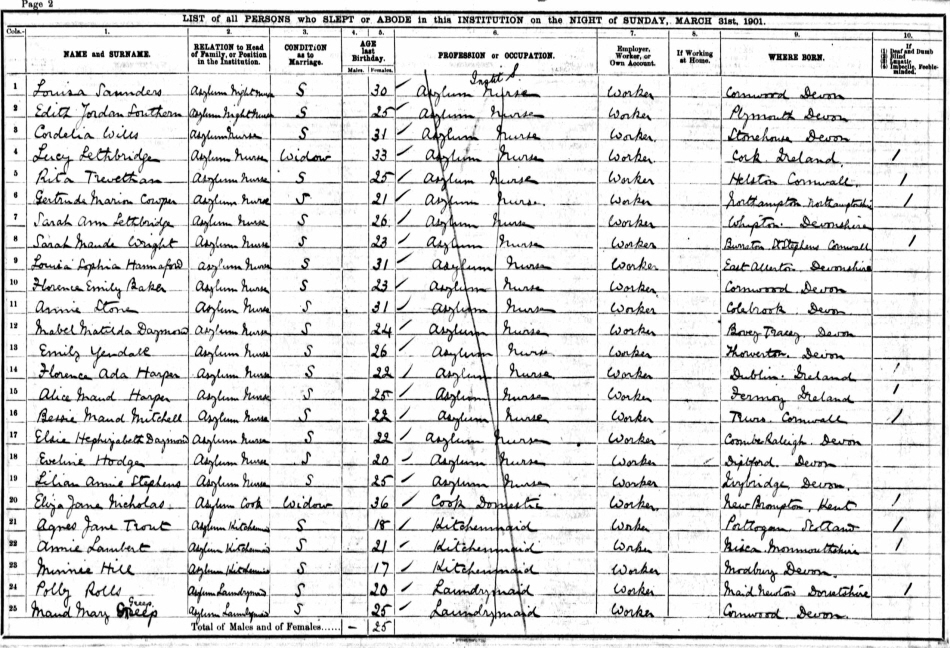 Page 2
LIST of all PERSONS who SLEPT or ABODE in this INSTITUTION on the NIGHT of SUNDAY, MARCH 31st, 1901.
Cols.— 1. 2. 3. 4. 5. 6. 7. 8. 9. 10.
NAME and SURNAME. RELATION to Head of Family, or Position in the Institution. CONDITION as to Marriage. AGE last Birthday. Males. Females. PROFESSION or OCCUPATION. Employer, Worker, or Own Account. If Working at Home. WHERE BORN. If (1) Deaf and Dumb (2) Blind (3) Lunatic (4) Imbecile, Feeble-minded.
1 Louisa Saunders Asylum Night Nurse S 30 Asylum Nurse Worker Cornwood Devon
2 Edith Jordan Southern Asylum Night Nurse S 25 Asylum Nurse Worker Plymouth Devon
3 Cordelia Wills Asylum Nurse S 31 Asylum Nurse Worker Stonehouse Devon
4 Lucy Lethbridge Asylum Nurse Widow 33 Asylum Nurse Worker Cork Ireland
5 Rita Trevethan Asylum Nurse S 25 Asylum Nurse Worker Helston Cornwall
6 Gertrude Marion Cowper Asylum Nurse S 21 Asylum Nurse Worker Northampton Northamptonshire
7 Sarah Ann Lethbridge Asylum Nurse S 26 Asylum Nurse Worker Whipton Devonshire
8 Sarah Maude Wright Asylum Nurse S 23 Asylum Nurse Worker St Stephens Cornwall
9 Louisa Sophia Hannaford Asylum Nurse S 31 Asylum Nurse Worker East Allerton Devonshire
10 Florence Emily Baker Asylum Nurse S 23 Asylum Nurse Worker Cornwood Devon
11 Annie Stone Asylum Nurse S 31 Asylum Nurse Worker Colebrook Devon
12 Mabel Matilda Daymond Asylum Nurse S 24 Asylum Nurse Worker Bovey Tracey Devon
13 Emily Yendall Asylum Nurse S 26 Asylum Nurse Worker Thorverton Devon
14 Florence Ada Harper Asylum Nurse S 22 Asylum Nurse Worker Dublin Ireland
15 Alice Maud Harper Asylum Nurse S 25 Asylum Nurse Worker Fermoy Ireland
16 Bessie Maud Mitchell Asylum Nurse S 22 Asylum Nurse Worker Cornwall
17 Elsie Hephzibeth Daymond Asylum Nurse S 22 Asylum Nurse Worker Coombe Raleigh Devon
18 Eveline Hodge Asylum Nurse S 20 Asylum Nurse Worker Diptford Devon
19 Lilian Annie Stephens Asylum Nurse S 25 Asylum Nurse Worker Ivybridge Devon
20 Eliza Jane Nicholas Asylum Cook Widow 36 Cook Domestic Worker New Brompton, Kent
21 Agnes Jane Trout Asylum Kitchenmaid S 18 Kitchenmaid Worker Scotland
22 Annie Lambert Asylum Kitchenmaid S 21 Kitchenmaid Worker Risca Monmouthshire
23 Minnie Hill Asylum Kitchenmaid S 17 Kitchenmaid Worker Modbury Devon
24 Polly Rolls Asylum Laundrymaid S 20 Laundrymaid Worker Maid Newton Dorsetshire
25 Maud Mary Greep Asylum Laundrymaid S 25 Laundrymaid Worker Cornwood Devon
Total of Males and of Females...... – 25